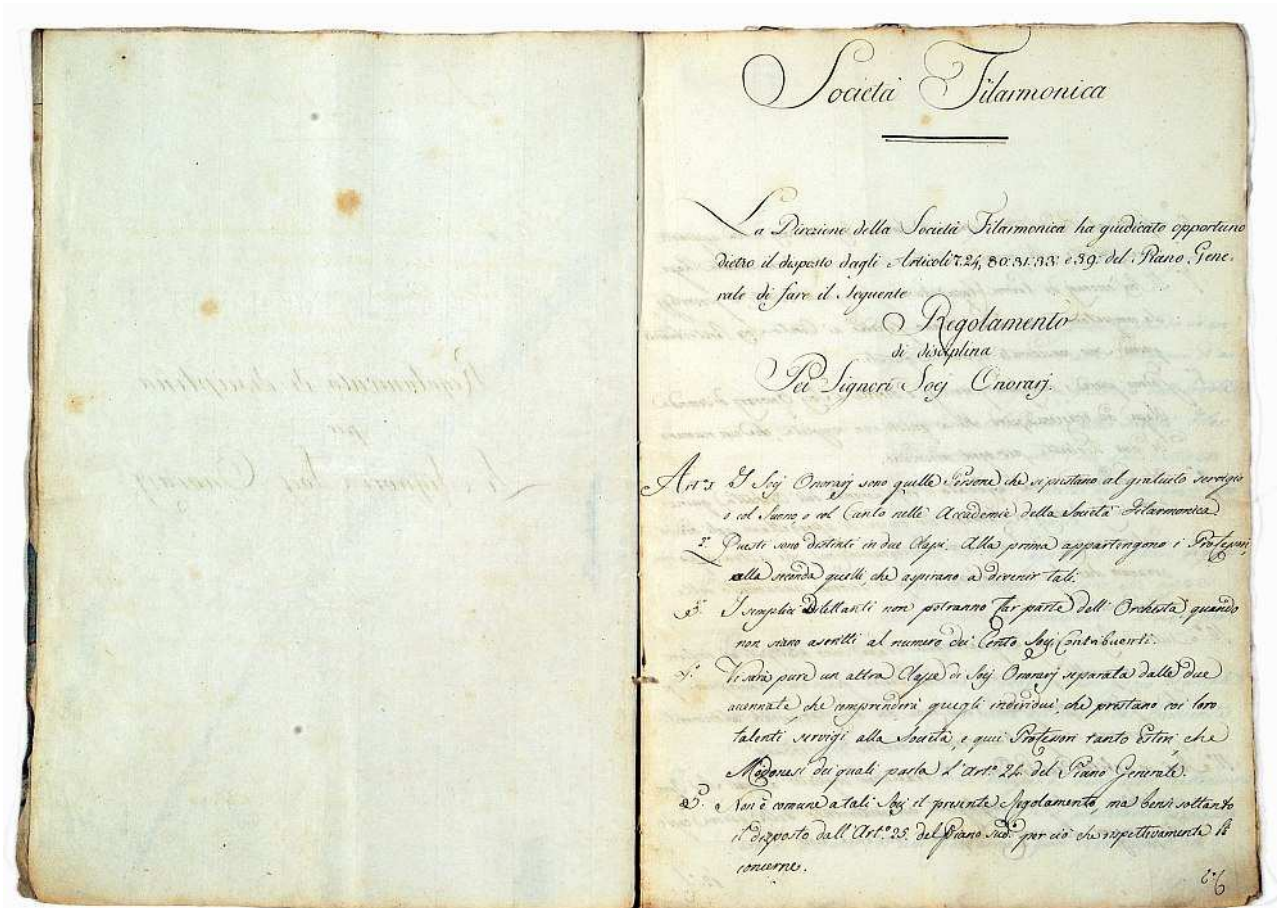 Società Filarmonica
La Direzione della Società Filarmonica ha giudicato opportuno
dietro il disposto dagli Articoli 7. 24, 30. 31. 33. e 39. del Piano Gene-
rale di fare il seguente
Regolamento
di disciplina
Pei Signori Socj Onorarj.
Art.º 1 I Socj Onorarj sono quelle Persone che si prestano al gratuito servigio
o col Suono, o col Canto nelle Accademie della Società Filarmonica
2.º Questi sono distinti in due Classi. Alla prima appartengono i Professori,
alla seconda quelli, che aspirano a divenir tali.
3.º I semplici Dilettanti non potranno far parte dell'Orchestra quando
non siano ascritti al numero dei Cento Socj Contribuenti.
4.º Vi sarà pure un altra Classe di Socj Onorarj separata dalle due
accennate che comprenderà quegli individui, che prestano coi loro
talenti servigi alla Società, e quei Professori tanto Esteri, che
Modonesi dei quali parla l'Art.º 24. del Piano Generale.
5.º Non è comune a tali Socj il presente Regolamento, ma bensì soltanto
il disposto dall'Art.º 25. del Piano sud.º per ciò che rispettivamente li
concerne.